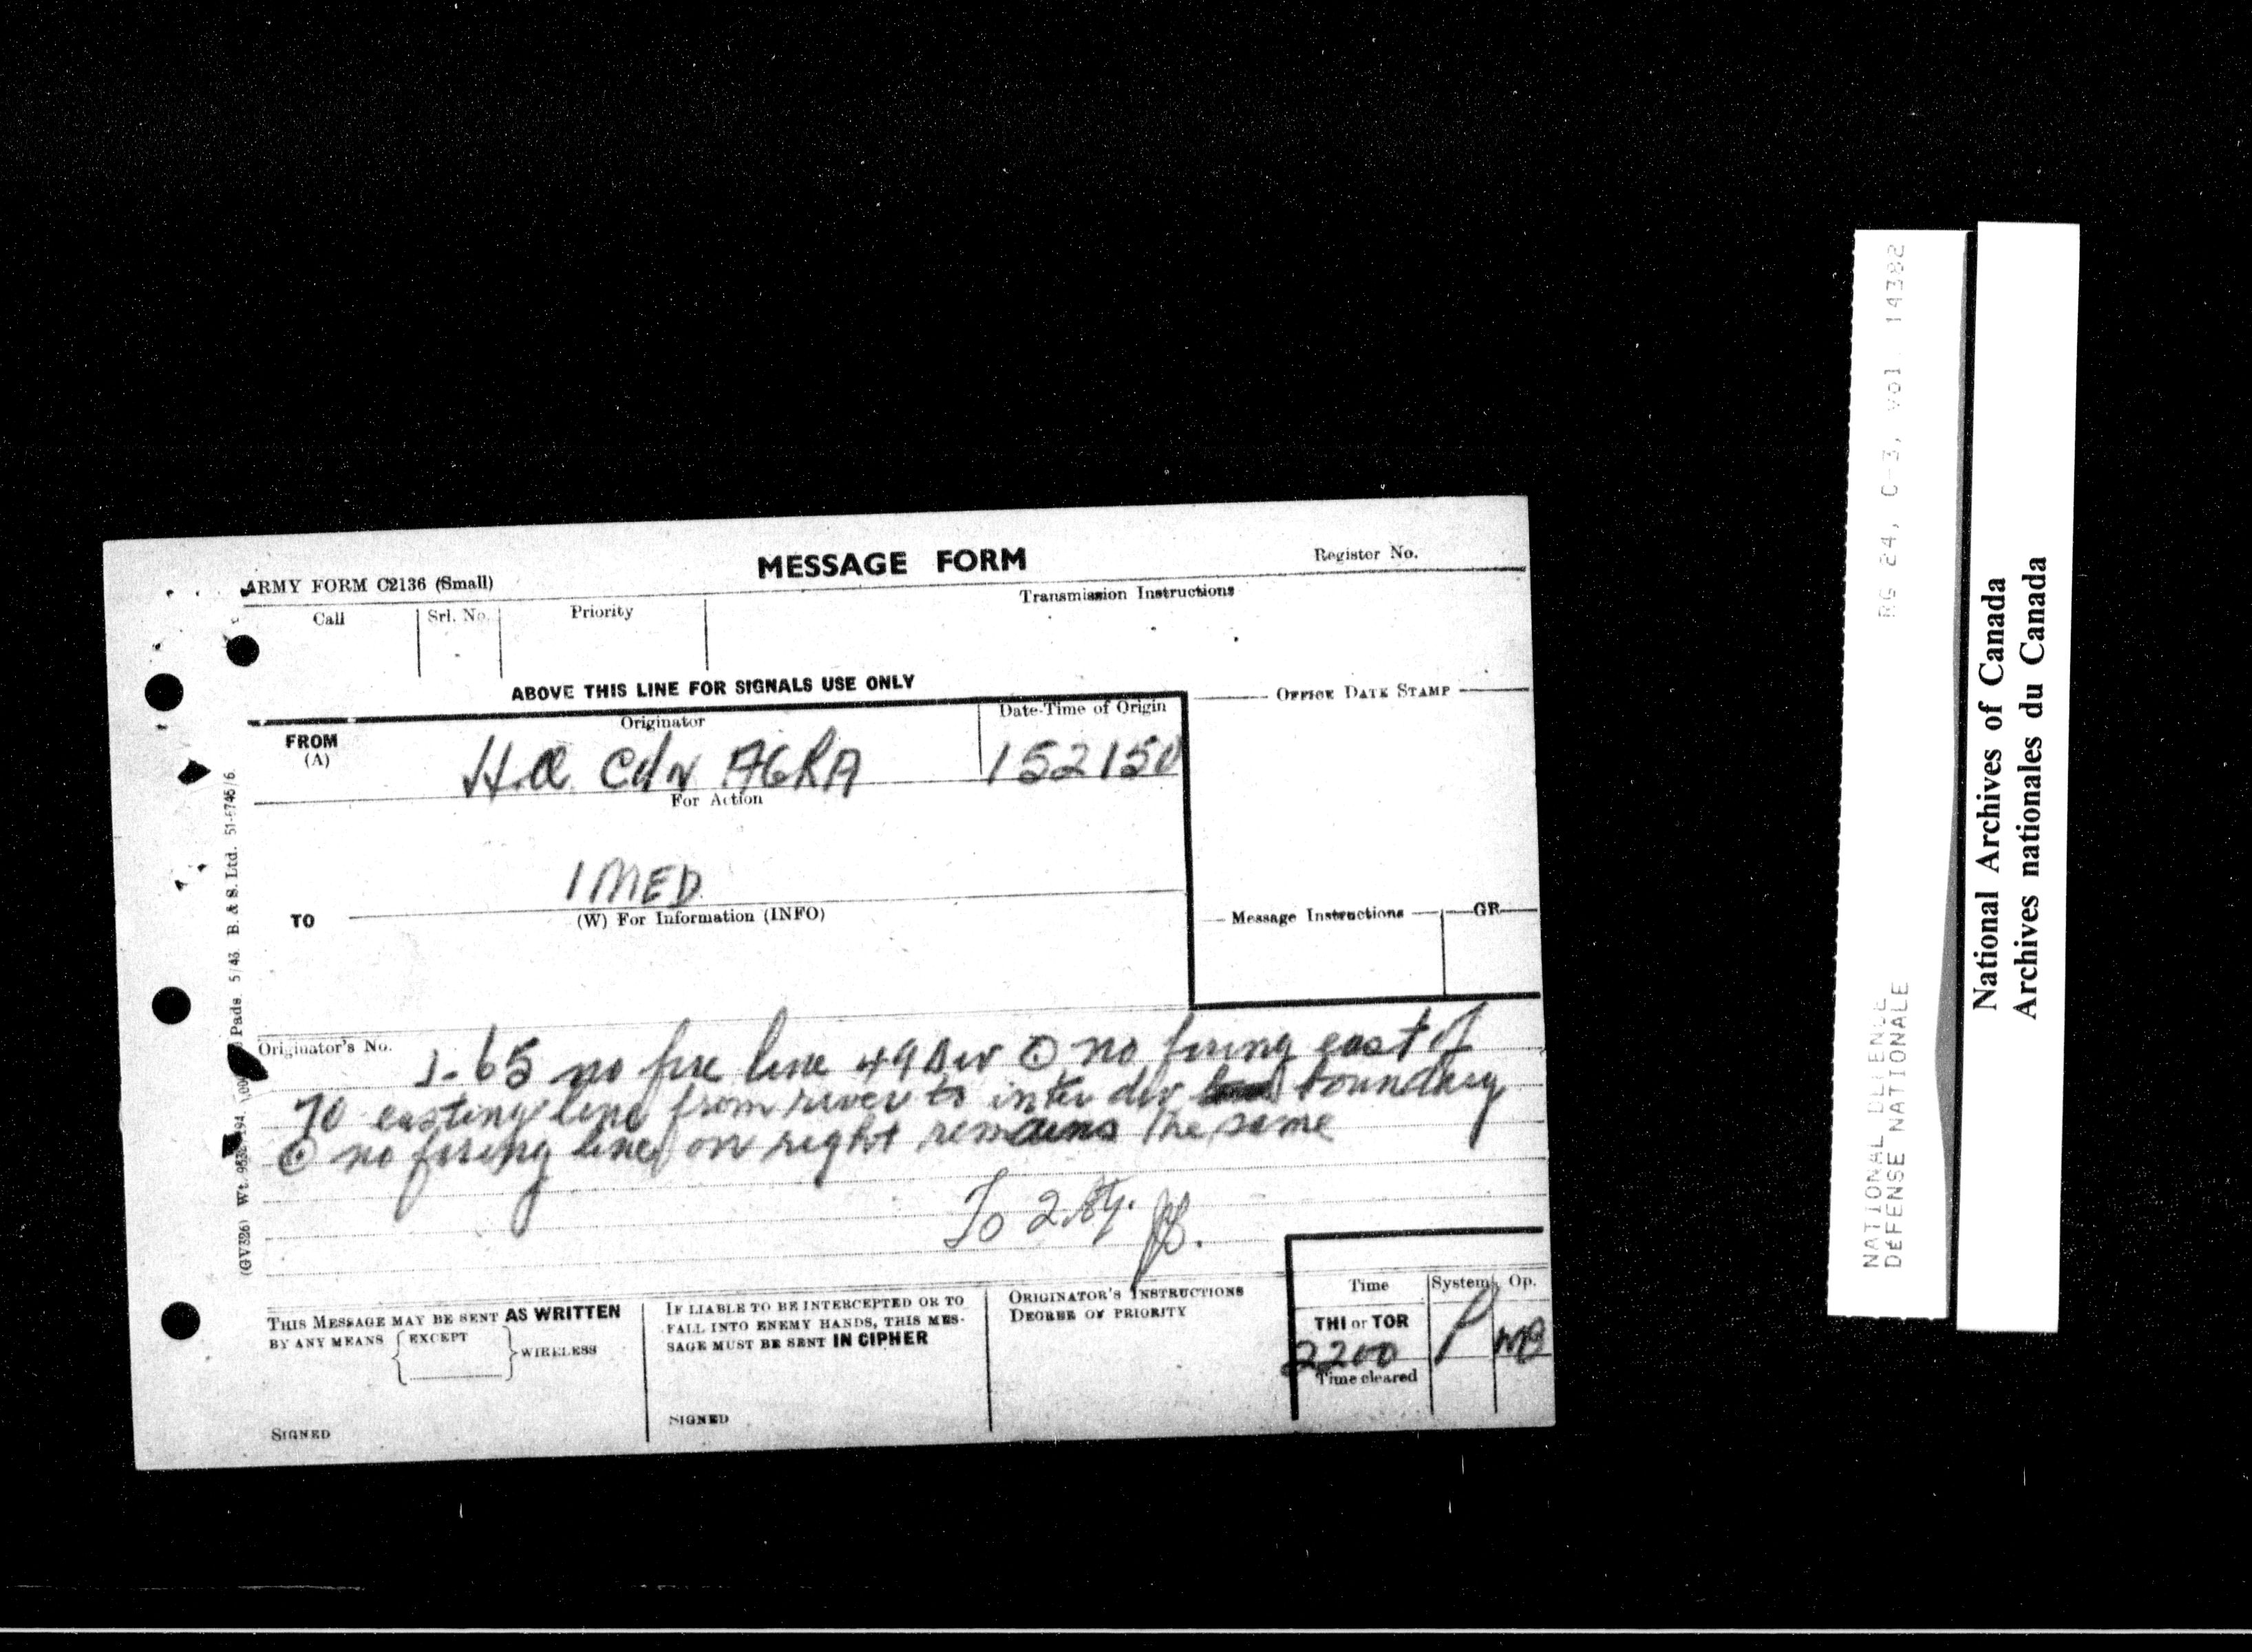 MESSAGE FORM
Register No.
ARMY FORM C2136 (Small)
Call
Srl. No.
Priority
Transmission Instructions
ABOVE THIS LINE FOR SIGNALS USE ONLY
OFFICE DATE STAMP
FROM
(A)
Originator
Date-Time of Origin
H.Q. Cdn AGRA
152150
For Action
1 MED.
TO
(W) For Information (INFO)
Message Instructions
GR
Originator's No.
J-65 no fire line 49 Div ⊙ no firing east of
70 easting line from river to inter div boundary
⊙ no firing line on right remains the same
To 2 Bty.
THIS MESSAGE MAY BE SENT AS WRITTEN
BY ANY MEANS { EXCEPT } WIRELESS
SIGNED
IF LIABLE TO BE INTERCEPTED OR TO
FALL INTO ENEMY HANDS, THIS MES-
SAGE MUST BE SENT IN CIPHER
SIGNED
ORIGINATOR'S INSTRUCTIONS
DEGREE OF PRIORITY
Time
System
Op.
THI or TOR
2200
P
MB
Time cleared
(GV326) Wt. Pads. 5/43. B. & S. Ltd. 51-6746/6.
RG 24, C-3, vol. 14382
NATIONAL DEFENCE
DÉFENSE NATIONALE
National Archives of Canada
Archives nationales du Canada